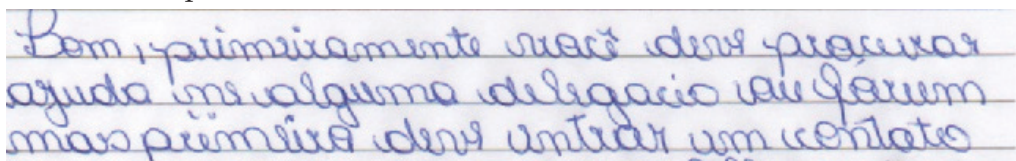 Bom, primeiramente você deve procurar
ajuda me alguma delegacia ou fórum
mas primeiro deve entrar um contato